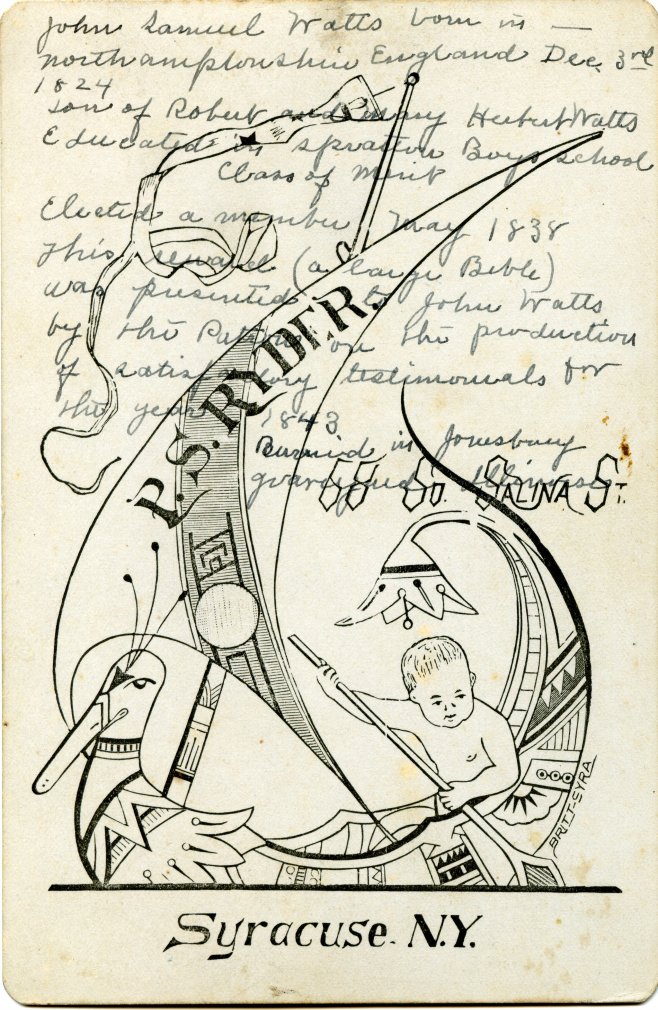 John Samuel Watts born in —
northamptonshire England Dec. 3rd
1824
Son of Robert and Mary Herbert Watts
Educated in Spratton Boys School
Class of Merit
Elected a member, May 1838
This reward (a large Bible)
was presented to John Watts
by the Patron on the production
of satisfactory testimonials for
the year 1843
Burried in Jonesbury
graveyard
P.S. RYDER.
68 So. SALINA ST.
BRITT-SYRA
Syracuse. N.Y.